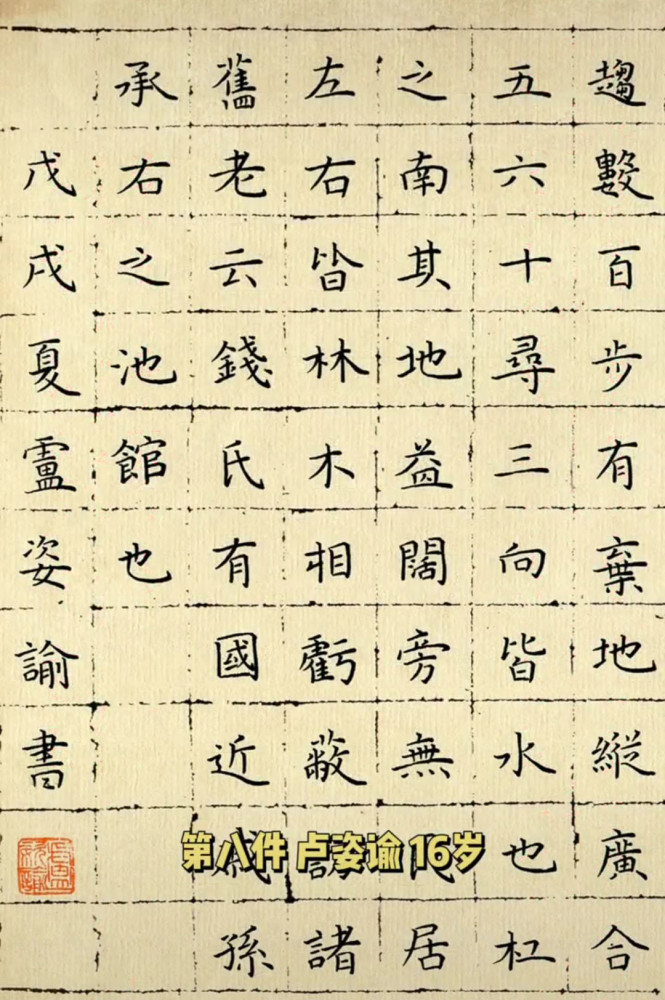 趨數百步有棄地縱廣合
五六十尋三向皆水也杠
之南其地益闊旁無居
左右皆林木相虧蔽諸
舊老云錢氏有國近孫
承右之池館也
戊戌夏盧姿諭書
第八件 卢姿谕 16岁